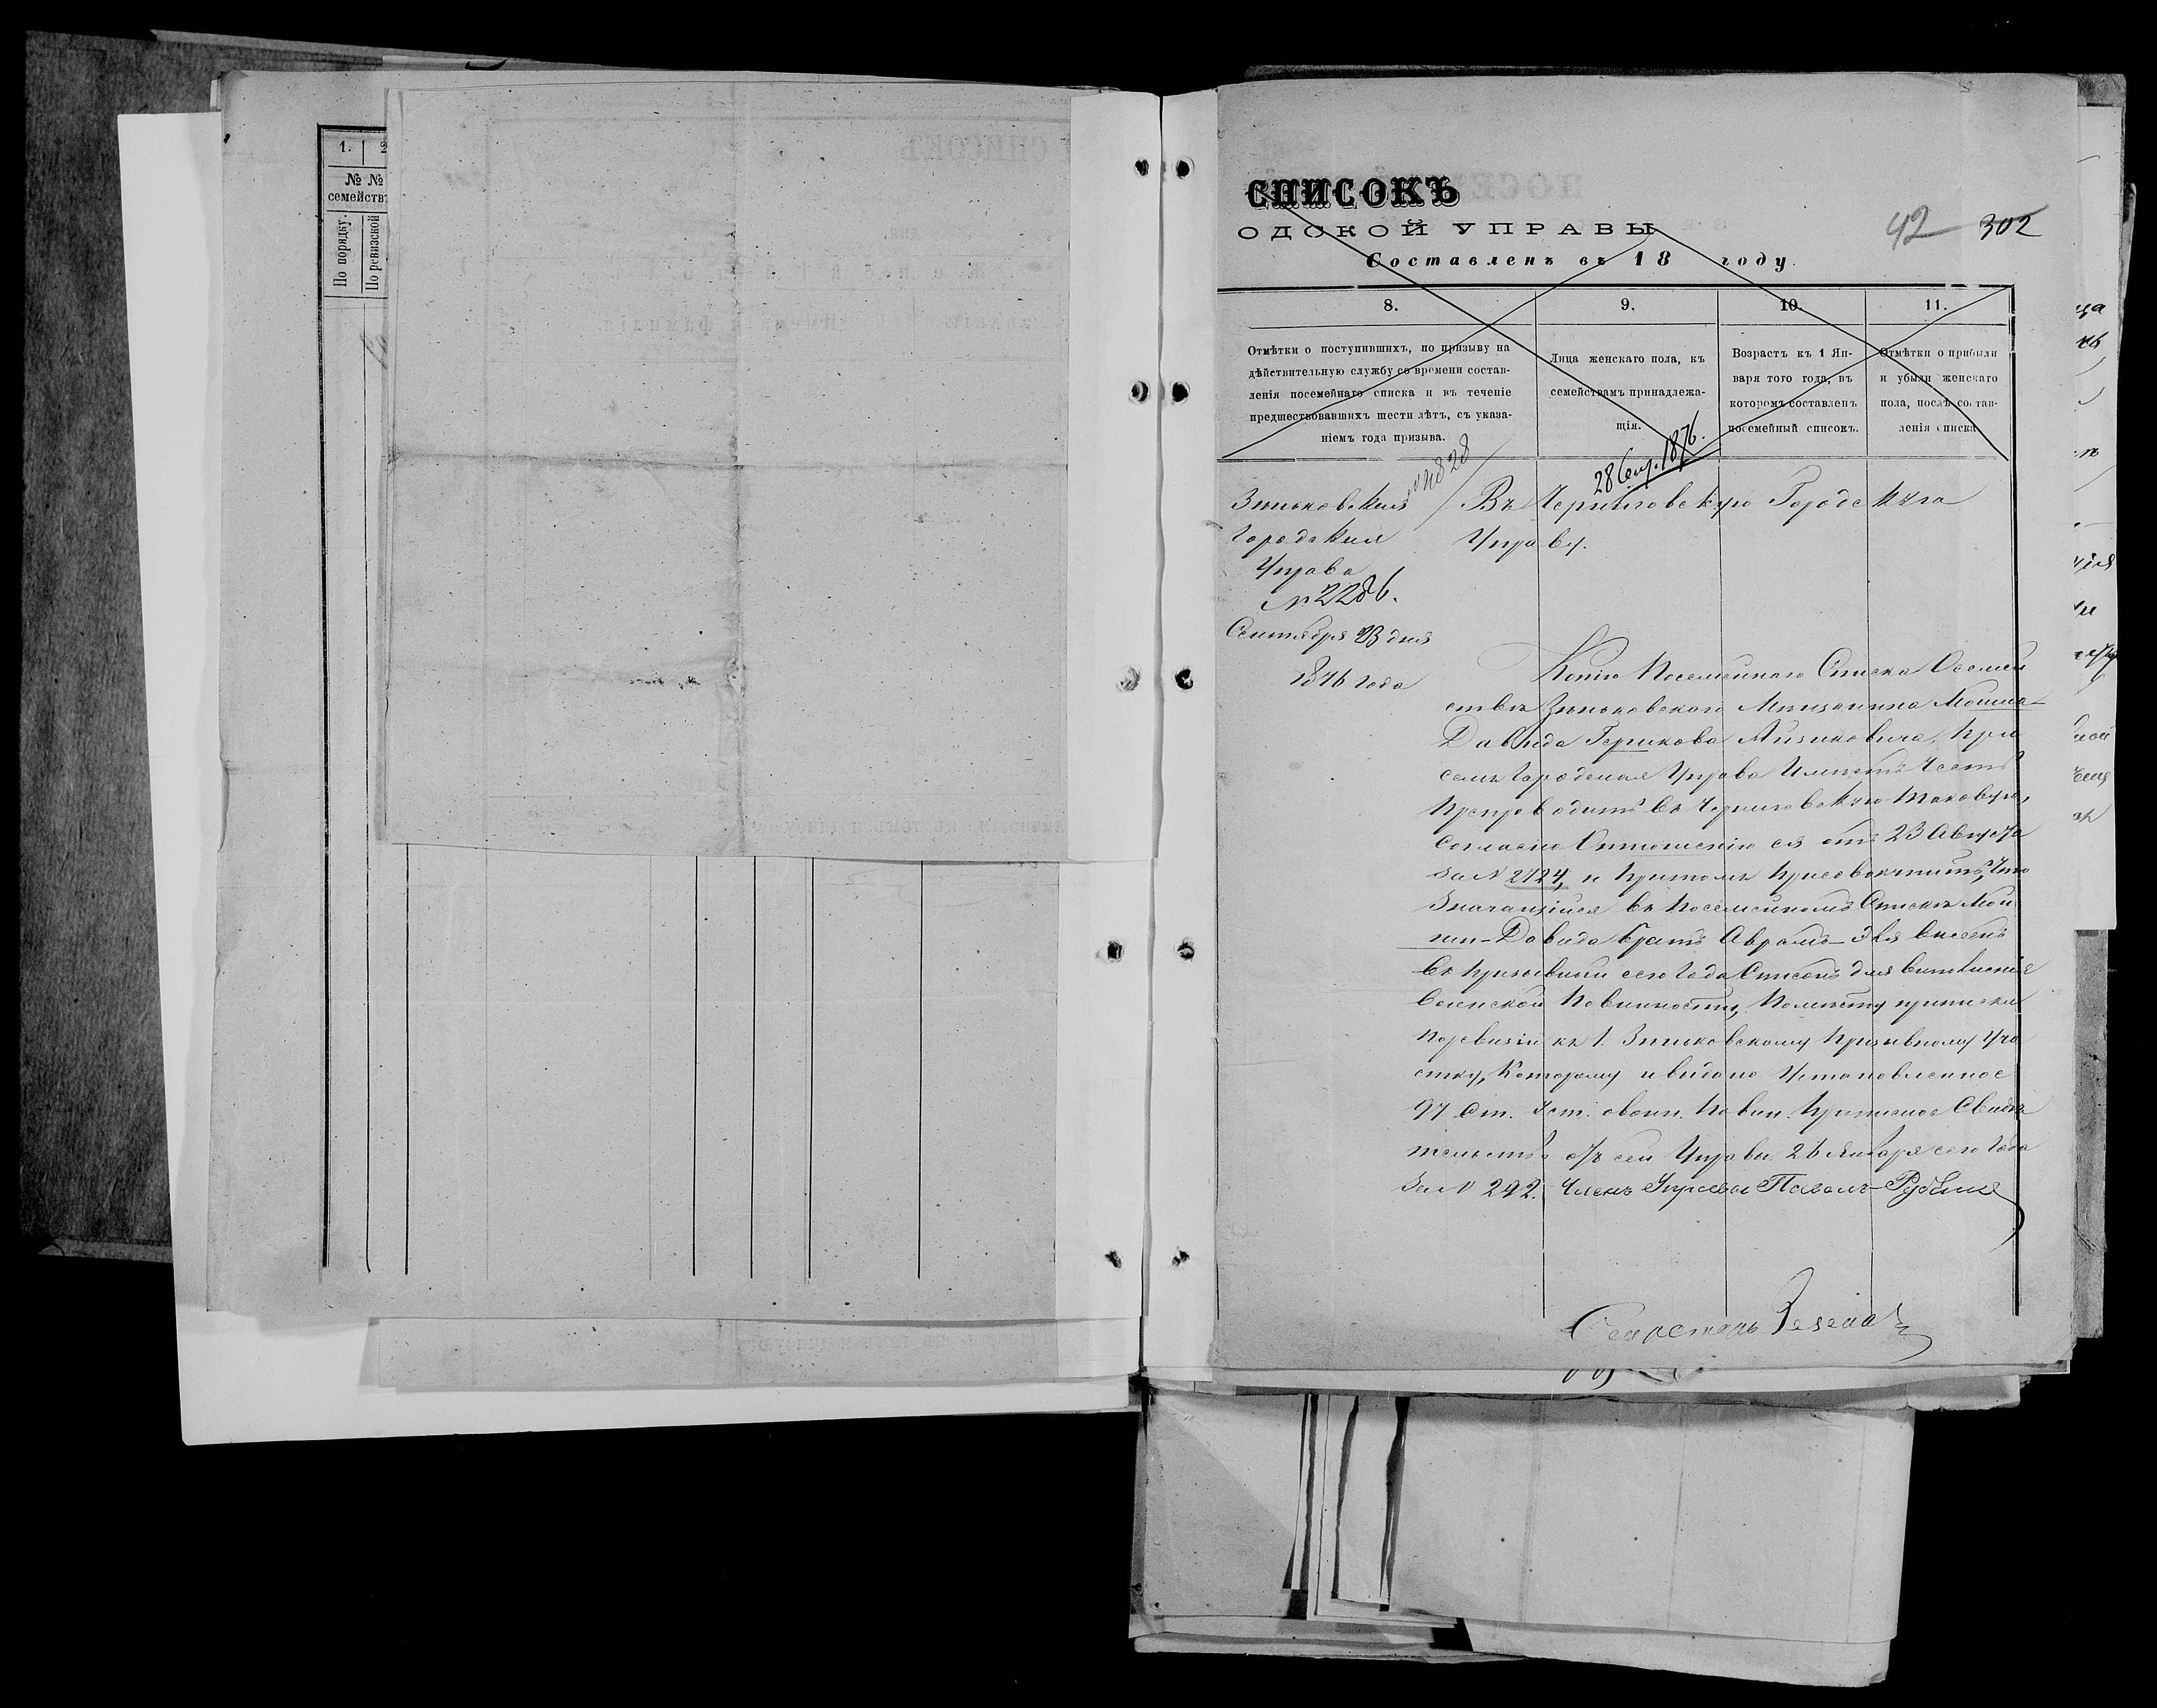 1. 2
№ №
семействъ
По порядку.
По ревизской
СПИСОКЪ
ОДСКОЙ УПРАВЫ
42 302
Составленъ въ 18 году.
8. 9. 10. 11.
Отмѣтки о поступившихъ, по призыву на
дѣйствительную службу со времени состав-
ленія посемейнаго списка и въ теченіе
предшествовавшихъ шести лѣтъ, съ указа-
ніемъ года призыва.
Лица женскаго пола, къ
семействамъ принадлежа-
щія.
Возрастъ къ 1 Ян-
варя того года, въ
которомъ составленъ
посемейный списокъ.
Отмѣтки о прибыли
и убыли женскаго
пола, послѣ состав-
ленія списка
28 Сен. 1876.
Зѣньковская
Городская
Управа
№ 2286.
Сентября 23 дня
1876 года
Въ Черниговскую Городскую
Управу.
Копію Посемейнаго Списка О семей
ствѣ Зѣньковскаго Мѣщанина Мошка-
Давида Герикова Айзиковича, при
семъ Городская Управа Имѣетъ Честь
препроводить въ Черниговскую таковую,
согласно Отношенію ея отъ 23 Августа
за № 2124, и притомъ присовокупить, что
Значащійся въ посемейномъ Спискѣ Мош
ки-Давида братъ Аврамъ- внесенъ
въ призывный сего года Списокъ для выполненія
воинской повинности, по мѣсту приписки
по ревизіи къ 1. Зѣньковскому призывному уча
стку, Которому и выдано Установленное
97 Ст. Уст. о воин. повин. приписное Свидѣ
тельство отъ сей Управы 26 Января сего года
за № 292. Членъ Управы Павелъ
Секретарь